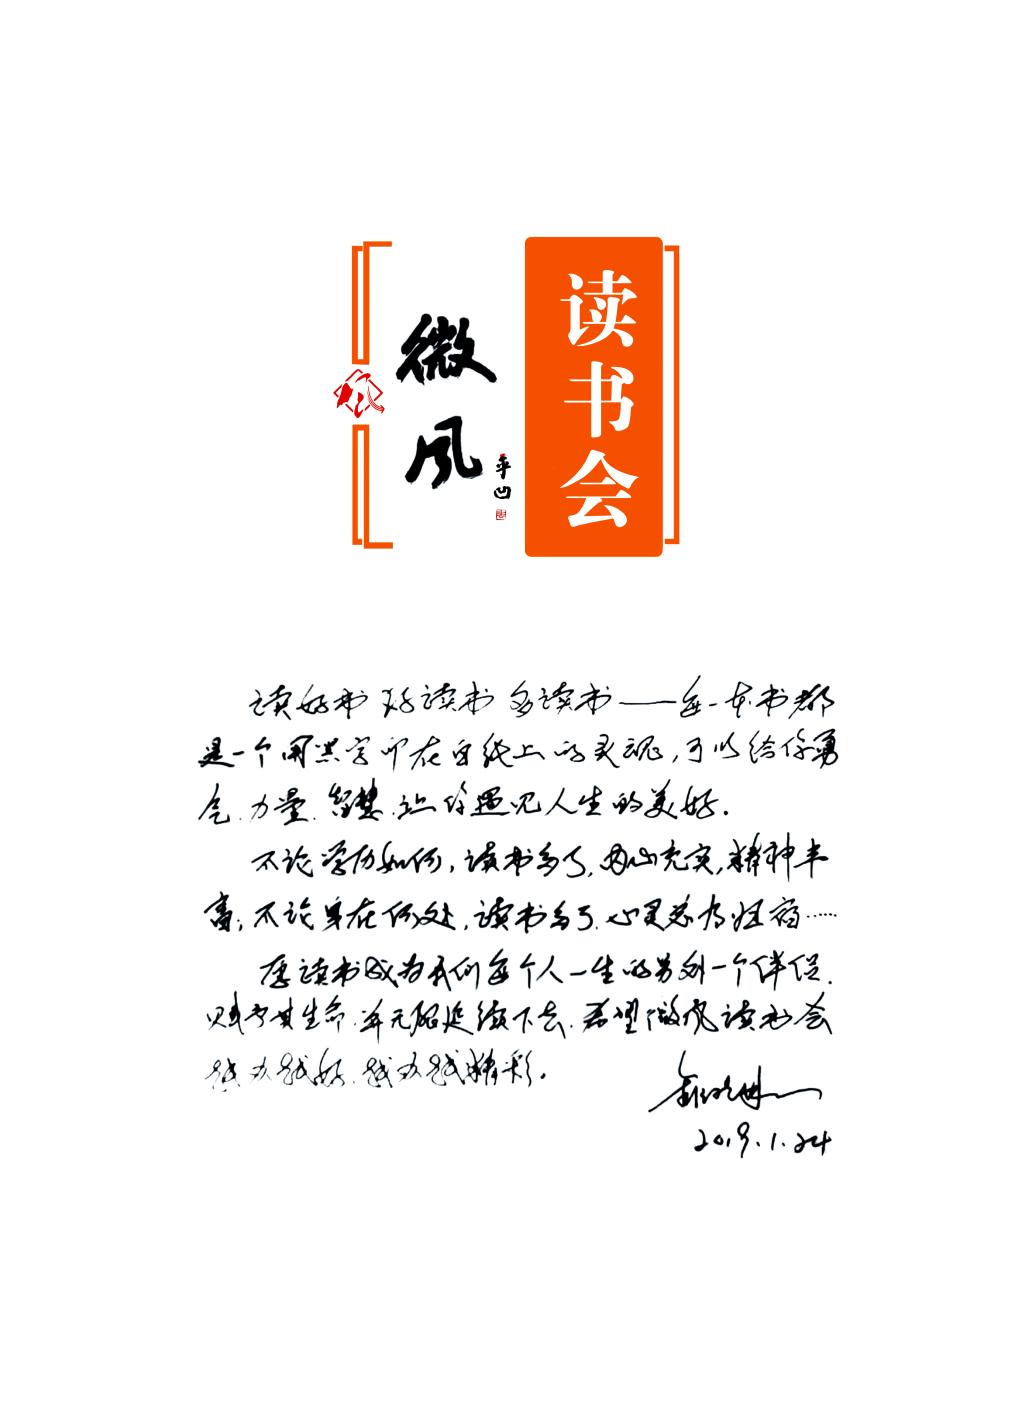 微风
平凹
读书会
读好书 好读书 多读书——每一本书都
是一个用黑字印在白纸上的灵魂,可以给你勇
气、力量、智慧、让你遇见人生的美好。
不论学历如何,读书多了,内心充实,精神丰
富;不论身在何处,读书多了、心灵总有归宿……
愿读书成为我们每个人一生的另外一个伴侣、
赋予其生命、并无限延续下去、希望微风读书会
越办越好、越办越精彩。
2019.1.24